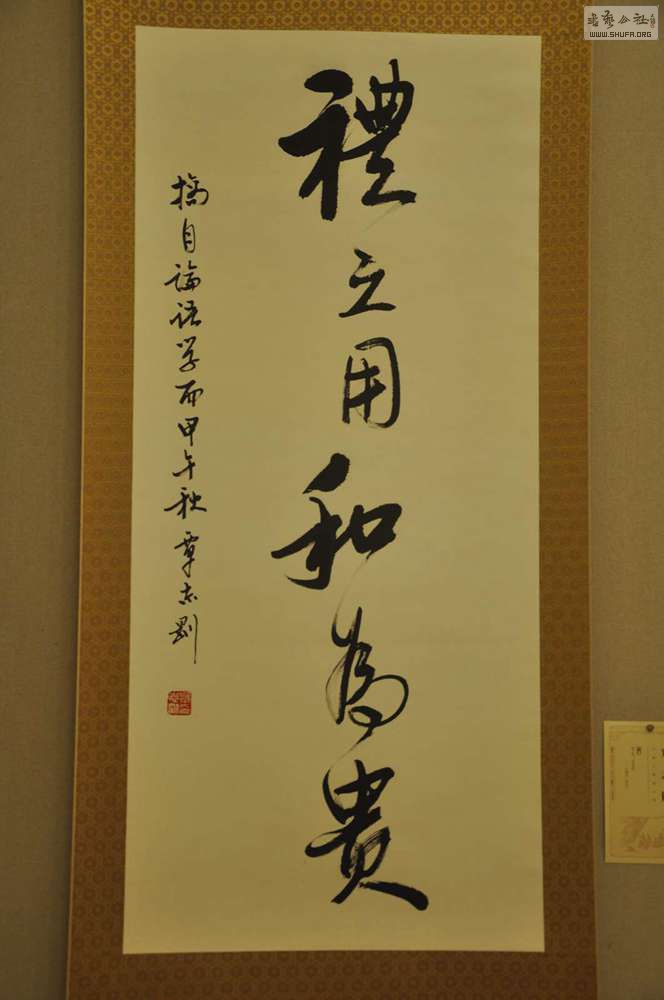 禮之用和為貴
摘自論語學而甲午秋覃志剛
書藝公社
WWW.SHUFA.ORG